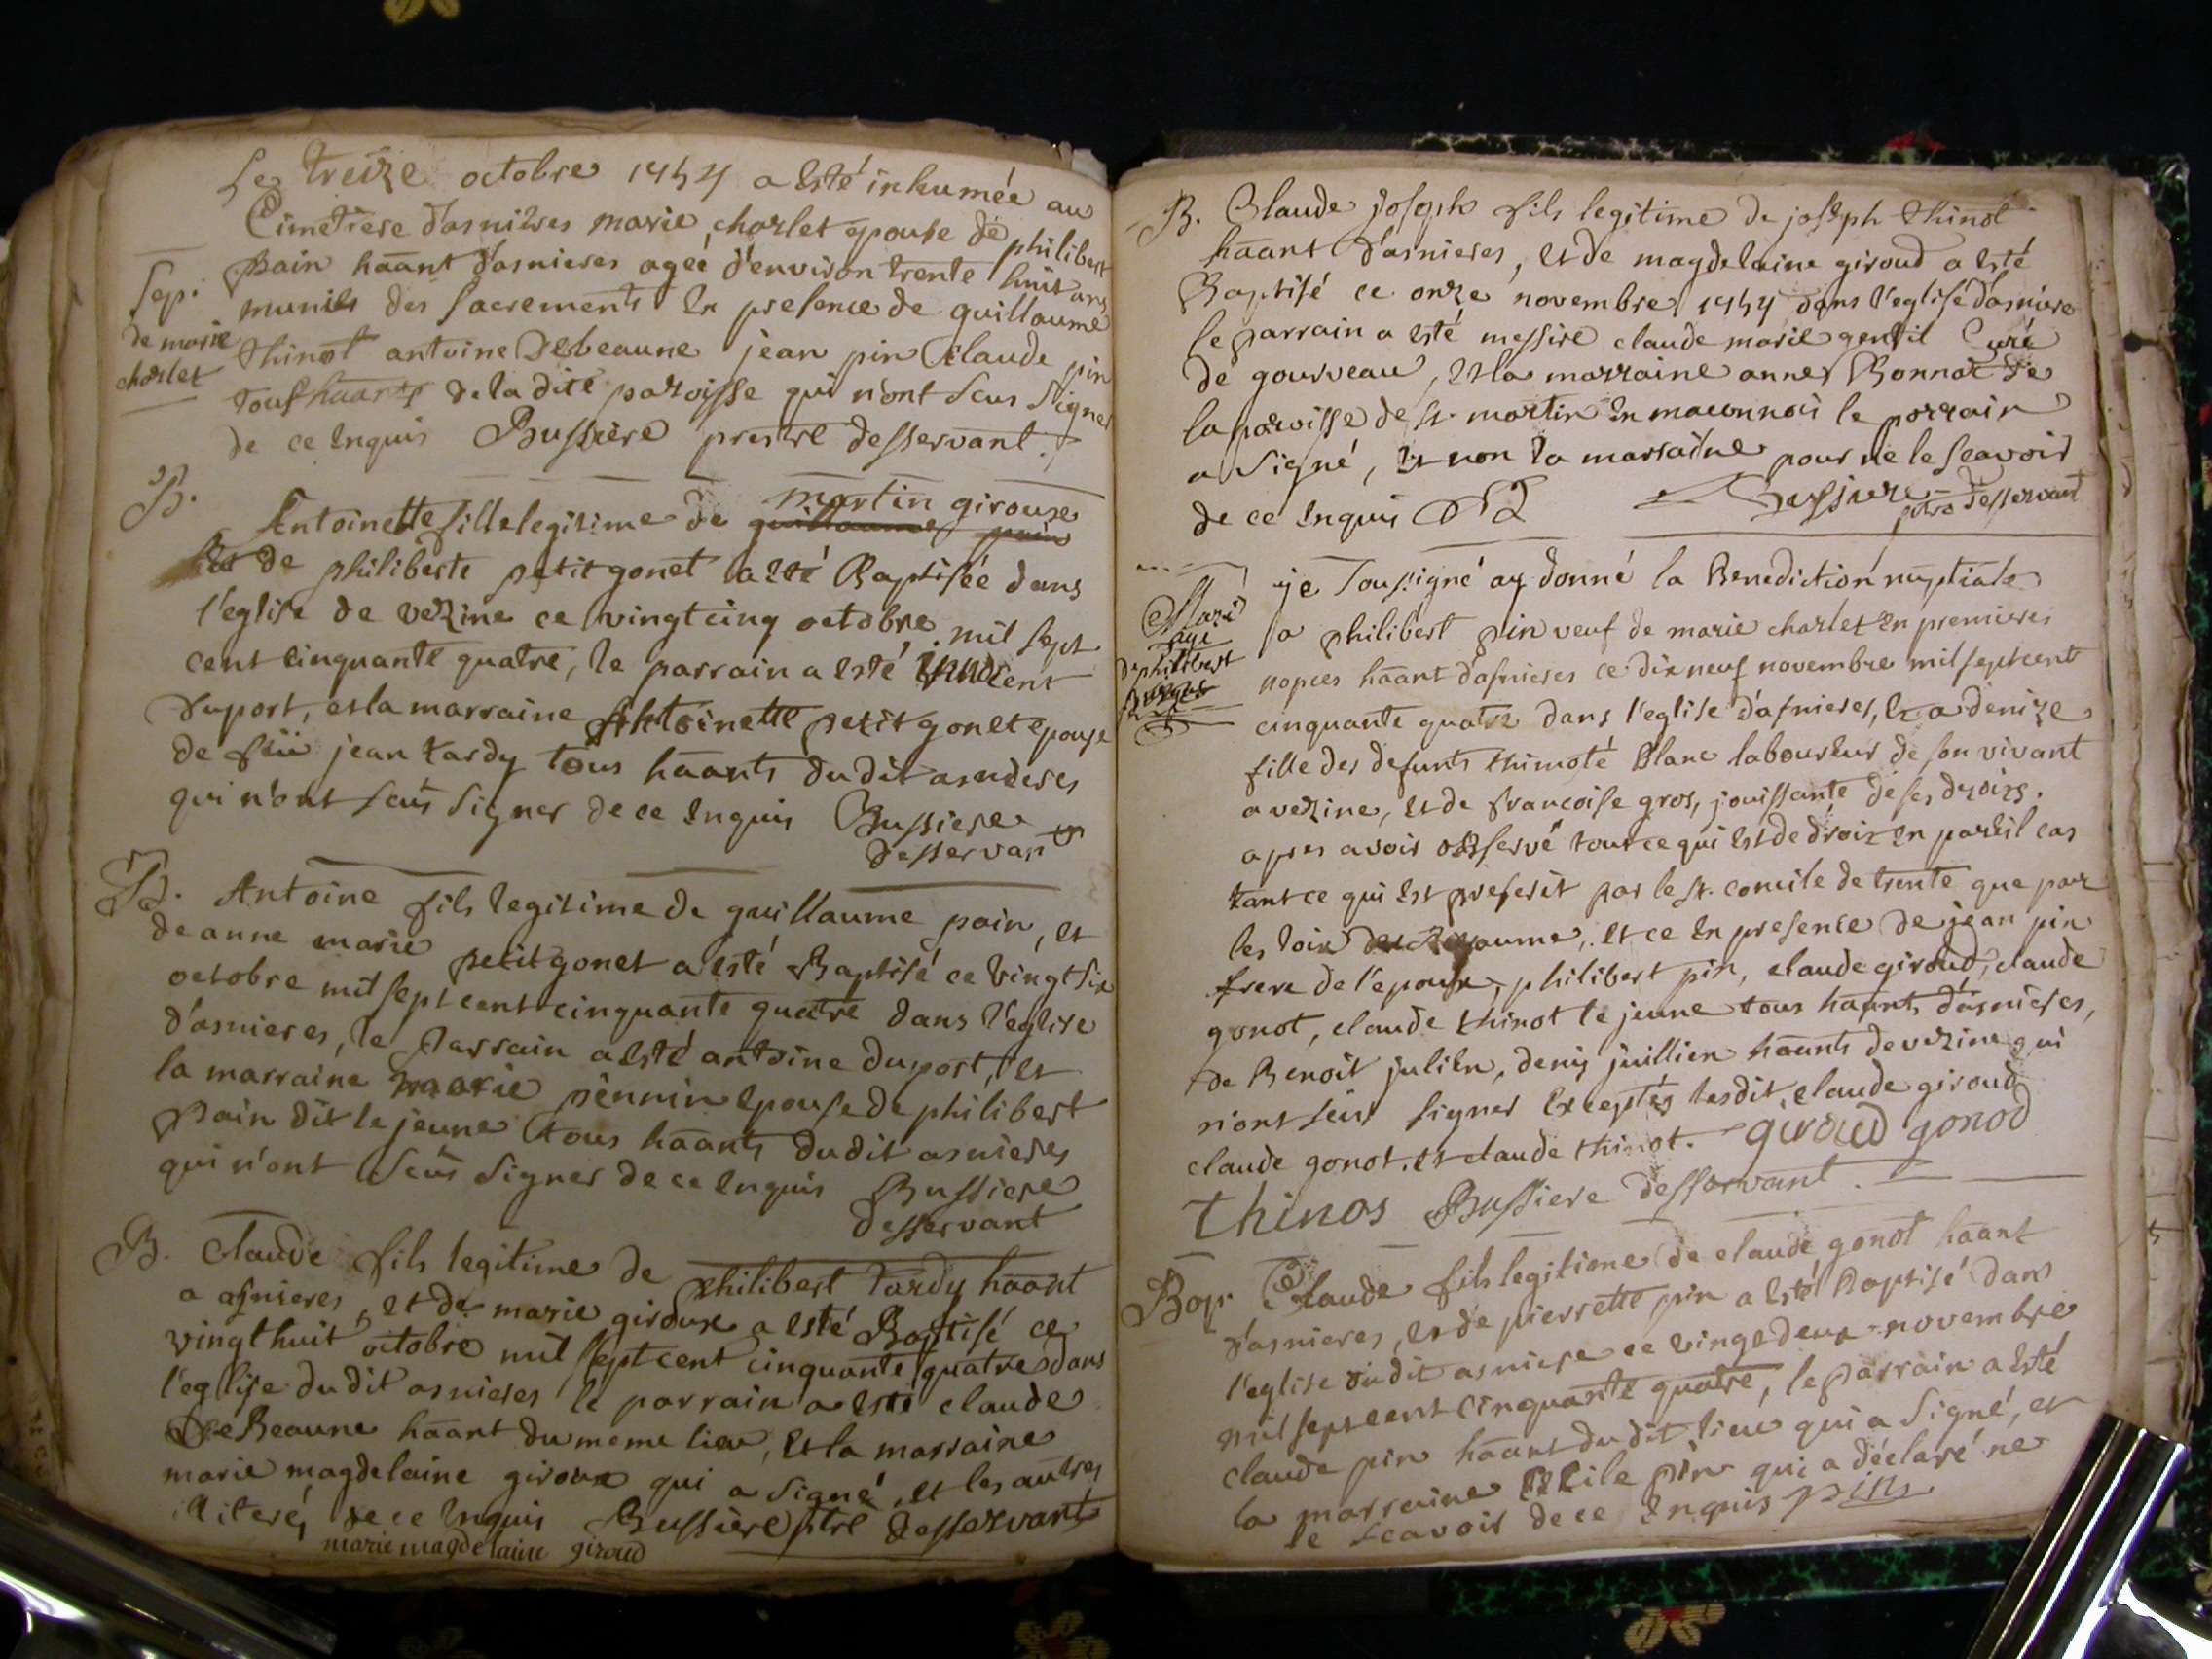 Le treize octobre 1754 a esté inhumée au
Cimetiere d'asnieres marie charlet epouse de philibert
Sep: Pain haānt d'asnieres ageé d'environ trente huit ans
munies des sacrements en presence de guillaume
de marie
charlet
thinot antoine Debeaune jean pin Claude pin
tous haānts de la dite paroisse qui n'ont sceus signer
de ce enquis Bussiere prestre desservant.
B.
Antoinette fille legitime de guillaume pain martin giroux
Et de philiberte petitgonet a esté Baptisée dans
l'eglise de vezine ce vingt cinq octobre mil sept
cent cinquante quatre, le parrain a esté innocent
duport, et la marraine Antoinette petit gonet epouse
de feü jean tardy tous haānts du dit asnieres
qui n'ont sceus signer de ce enquis Bussiere
desservant
B. Antoine fils legitime de guillaume pain, et
de anne marie petitgonet a esté Baptisé ce vingt six
octobre mil sept cent cinquante quatre dans l'eglise
d'asnieres, le parrain a esté antoine duport, et
la marraine marie pennin epouse de philibert
Pain dit le jeune tous haānts du dit asnieres
qui n'ont sceus signer de ce enquis Bussiere
desservant
B. Claude fils legitime de philibert tardy haānt
a asnieres, et de marie giroux a esté Baptisé ce
vingt huit octobre mil sept cent cinquante quatre dans
l'eglise du dit asnieres le parrain a esté claude
DeBeaune haānt du meme lieu, et la marraine
marie magdelaine giroux qui a signé, et les autres
illiteré, de ce enquis Bussiere ptre desservant
marie magdelaine giroud
B. Claude joseph fils legitime de joseph thinot
haānt d'asnieres, et de magdelaine giroud a esté
Baptisé ce onze novembre 1754 dans l'eglise d'asniere
le parrain a esté messire claude marie gentil Curé
de gourveau, et la marraine anne Bonnat de
la paroisse de st. martin en maconnois le parrain
a signé, et non la marraine pour ne le sçavoir
de ce enquis Bussiere
ptre desservant
je soussigné ay donné la Benediction nuptiale
Mari
age
de philibert
a philibert pin veuf de marie charlet en premieres
nopces haānt d'asnieres ce dix neuf novembre mil sept cent
cinquante quatre dans l'eglise d'asnieres, et a denize
fille des defunts thimoté Blanc laboureur de son vivant
a vezine, et de francoise gros, jouissante de ses droits.
apres avoir observé tout ce qui est de droit en pareil cas
tant ce qui est prescrit par le st. concile de trente que par
les loix du Royaume, et ce en presence de jean pin
frere de l'epoux, philibert pin, claude giroud, claude
gonot, claude thinot le jeune tous haānts d'asnieres,
de Benoit julien, denis juillien haānts de vezine qui
n'ont sceus signer exceptés lesdit claude giroud
claude gonot, et claude thinot. giroud gonod
thinos Bussiere desservant.
Bap. Claude fils legitime de claude gonot haānt
d'asnieres, et de pierrette pin a esté Baptisé dans
l'eglise du dit asniere ce vingt deux novembre
mil sept cent cinquante quatre, le parrain a esté
claude pin haānt du dit lieu qui a signé, et
la marraine Cecile pin qui a déclaré ne
le scavoir de ce enquis pin